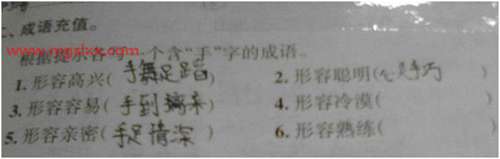 二、成语充值。
根据提示各写一个含“手”字的成语。
1. 形容高兴(手舞足蹈) 2. 形容聪明(心灵手巧)
3. 形容容易(手到擒来) 4. 形容冷漠( )
5. 形容亲密(手足情深) 6. 形容熟练( )